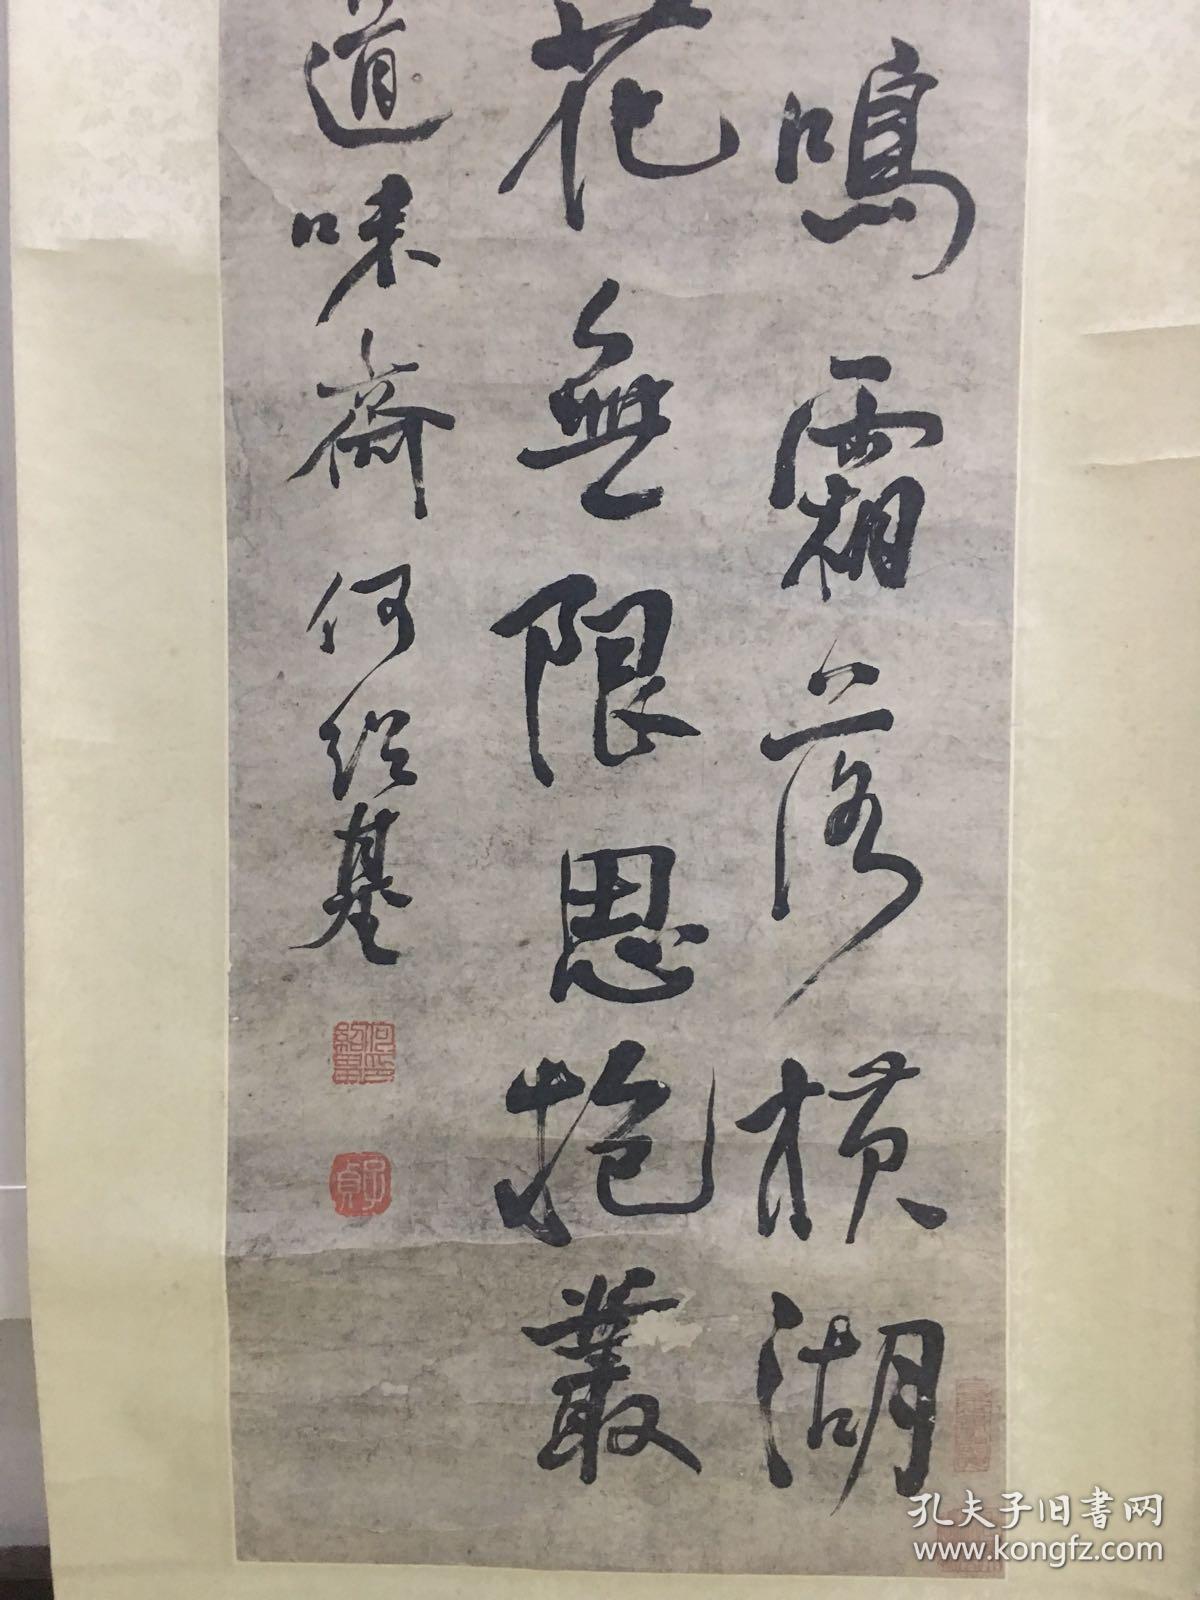 鳴霜落横湖
花無限思抱叢
道味齋何紹基
何紹基印
子貞
孔夫子旧书网
www.kongfz.com